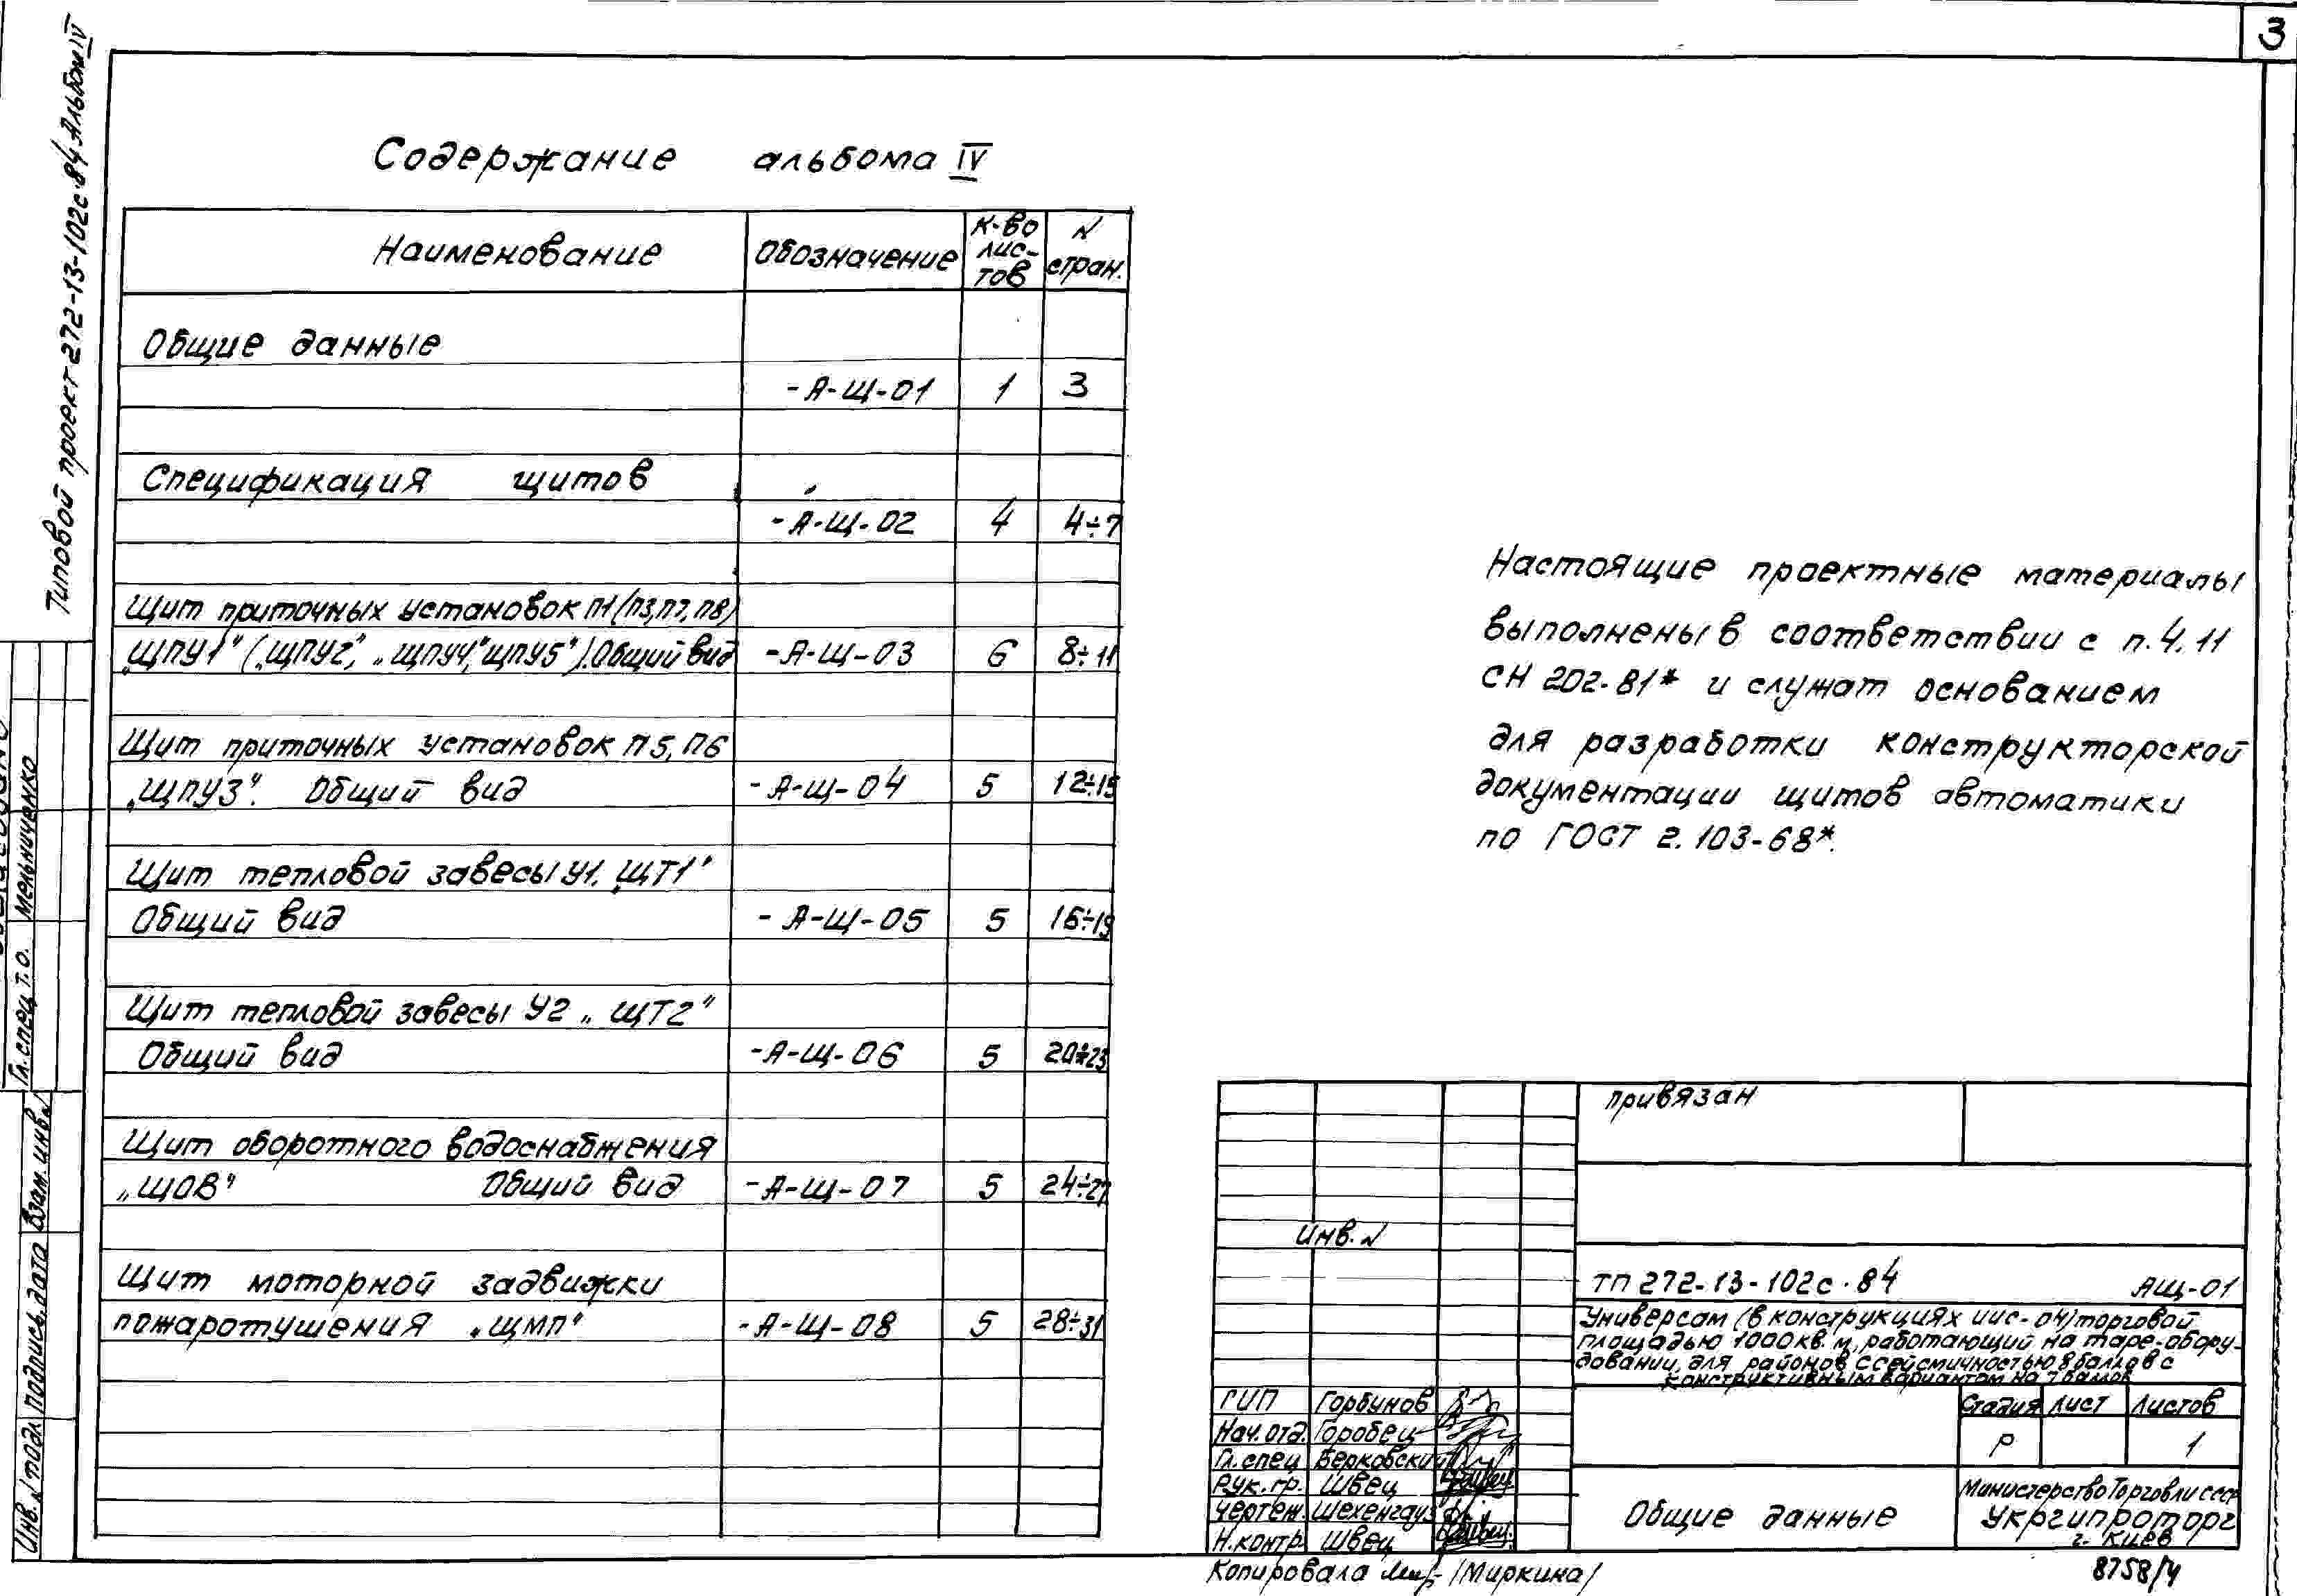 3
Типовой проект 272-13-102с.84 Альбом IV
Содержание альбома IV
Наименование
Обозначение
К-во
лис-
тов
N
стран.
Общие данные
-А-Щ-01 1 3
Спецификация щитов
-А-Щ-02 4 4÷7
Щит приточных установок П1 (П3, П7, П8)
„ЩПУ1" („ЩПУ2", „ЩПУ4", „ЩПУ5"). Общий вид -А-Щ-03 6 8÷11
Щит приточных установок П5, П6
„ЩПУ3". Общий вид -А-Щ-04 5 12÷15
Щит тепловой завесы У1. „ЩТ1"
Общий вид -А-Щ-05 5 16÷19
Щит тепловой завесы У2 „ЩТ2"
Общий вид -А-Щ-06 5 20÷23
Щит оборотного водоснабжения
„ЩОВ" Общий вид -А-Щ-07 5 24÷27
Щит моторной задвижки
пожаротушения „ЩМП" -А-Щ-08 5 28÷31
Настоящие проектные материалы
выполнены в соответствии с п. 4.11
СН 202-81* и служат основанием
для разработки конструкторской
документации щитов автоматики
по ГОСТ 2.103-68*.
Гл. спец. т.о. Мельниченко
Инв. N подл. Подпись, дата Взам. инв. N
привязан
Инв. N
ТП 272-13-102с.84 АЩ-01
Универсам (в конструкциях ИИС-04) торговой
площадью 1000 кв. м, работающий на таре-обору-
довании, для районов с сейсмичностью 8 баллов с
конструктивным вариантом на 7 баллов
ГИП Горбунов
Нач. отд. Горобец
Гл. спец Берковский
Рук. гр. Швец
Чертеж. Шехенгауз
Н. контр. Швец
Стадия Лист Листов
Р 1
Общие данные
Министерство Торговли СССР
Укргипроторг
г. Киев
Копировала /Миркина/
8758/4